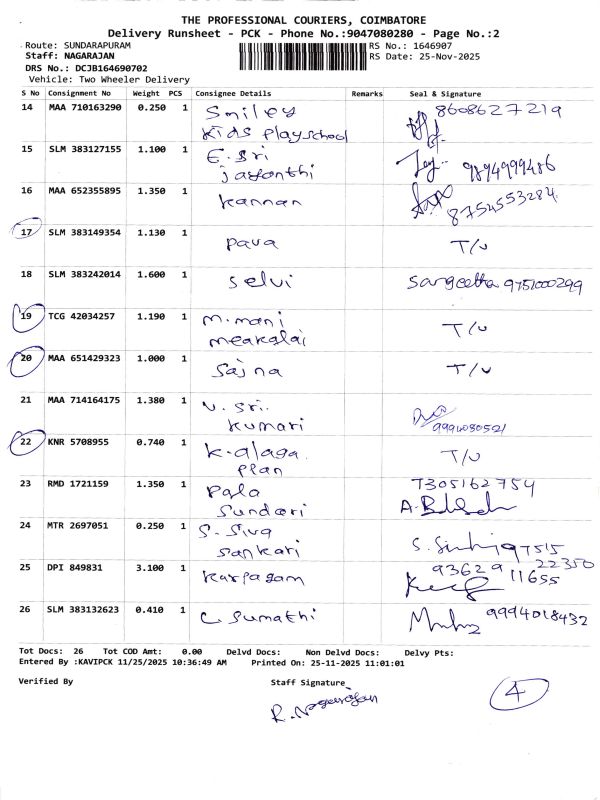 THE PROFESSIONAL COURIERS, COIMBATORE
Delivery Runsheet - PCK - Phone No.:9047080280 - Page No.:2
Route: SUNDARAPURAM RS No.: 1646907
Staff: NAGARAJAN RS Date: 25-Nov-2025
DRS No.: DCJB164690702
Vehicle: Two Wheeler Delivery
S No Consignment No Weight PCS Consignee Details Remarks Seal & Signature
14 MAA 710163290 0.250 1 Smiley 8608627219
Kids Playschool
15 SLM 383127155 1.100 1 E. Sri 9894999486
jayanthi
16 MAA 652355895 1.350 1 Kannan 8754553284
17 SLM 383149354 1.130 1 Pava T/U
18 SLM 383242014 1.600 1 Selvi Sangeetha 9751000299
19 TCG 42034257 1.190 1 M. mani T/U
meakalai
20 MAA 651429323 1.000 1 Sajna T/U
21 MAA 714164175 1.380 1 V. Sri.
Kumari 9994080521
22 KNR 5708955 0.740 1 K-alaga T/U
Plan
23 RMD 1721159 1.350 1 Pala 7305162754
Sundari
24 MTR 2697051 0.250 1 S. Siva
Sankari 97515
22350
25 DPI 849831 3.100 1 Karpagam 93629
11655
26 SLM 383132623 0.410 1 C. Sumathi 9994018432
Tot Docs: 26 Tot COD Amt: 0.00 Delvd Docs: Non Delvd Docs: Delvy Pts:
Entered By :KAVIPCK 11/25/2025 10:36:49 AM Printed On: 25-11-2025 11:01:01
Verified By Staff Signature
R. Nagarajan
4